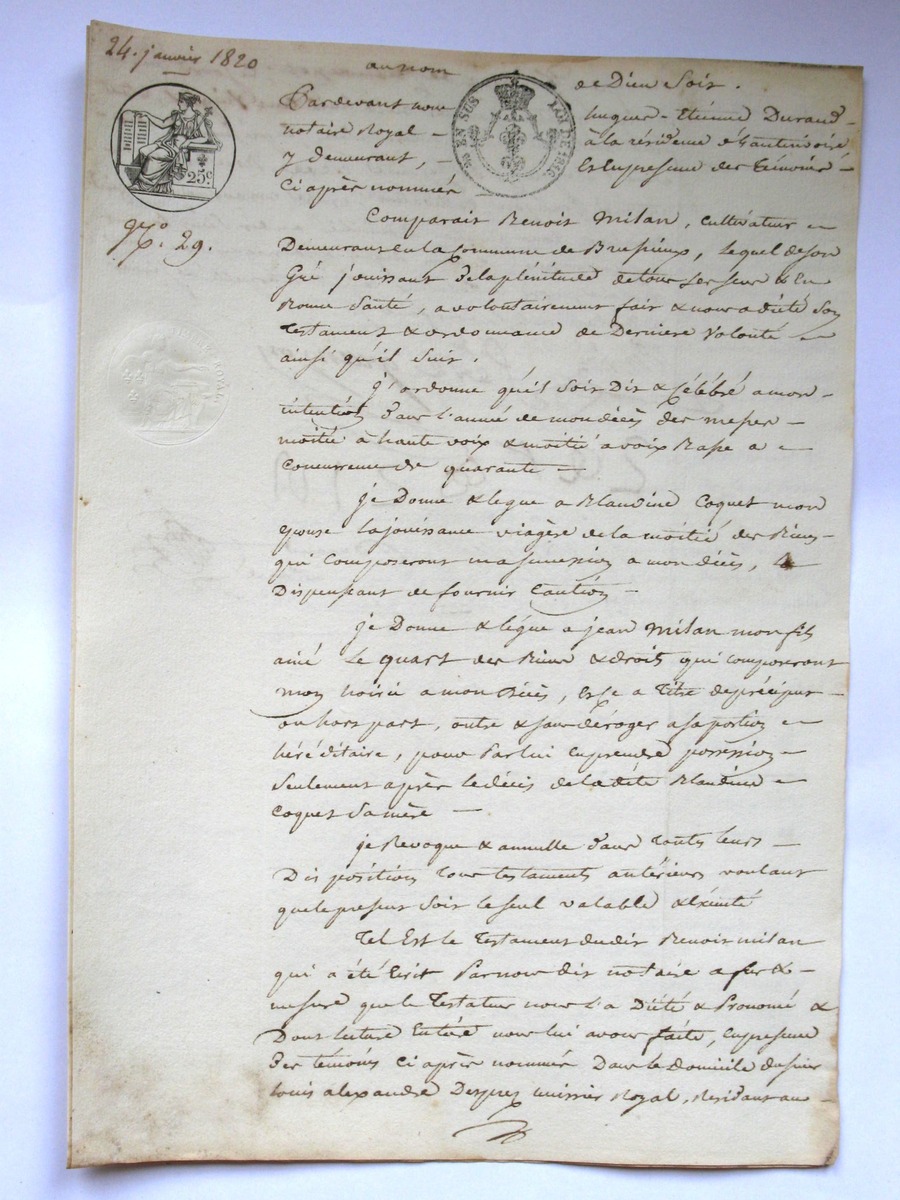 24. janvier 1820
au nom de Dieu Soit.
Pardevant nous hugues-Etienne Durand
notaire Royal à la résidence
y demeurant, Et En presence des témoins
Ci après nommés
EN SUS
25c
No. 29.
Comparait Benoit Milan, cultivateur
Demeurant En la Commune de Brussieux, lequel de son
Gré jouissant de la plenitude de tous ses sens & En
Bonne Santé, a volontairement fait & nous a dicté Son
testament & ordonnance de Derniere Volonté
ainsi qu'il suit.
j'ordonne qu'il soit Dit & Célébré a mon
intention dans l'année de mon décès des messes
moitié à haute voix & moitié a voix Basse a
Concurrence de quarante
je Donne & legue a Blandine Coquet mon
Epouse la jouissance viagère de la moitié des Biens
qui Composeront ma succession a mon décès, la
Dispensant de fournir Caution
je Donne & légue a jean Milan mon fils
ainé Le quart des Biens & droits qui composeront
mon hoirie a mon Décès, & ce a Titre de préciput
ou hors part, outre & sans déroger a sa portion
héréditaire, pour Par lui En prendre possession
Seulement après le décès de ladite Blandine
Coquet Sa mère
je Revoque & annulle dans Toutes leurs
Dispositions Tous testaments antérieurs voulant
que le present Soit le seul valable & Exécuté
Tel Est le Testament dudit Benoit milan
qui a été Ecrit Par nous dit notaire a fur &
mesure que le Testateur nous l'a Dicté & Prononcé &
Dont lecture Entière nous lui avons faite, En presence
des témoins Ci après nommés Dans le domicile du sieur
louis alexandre Desprez huissier Royal, Residant au